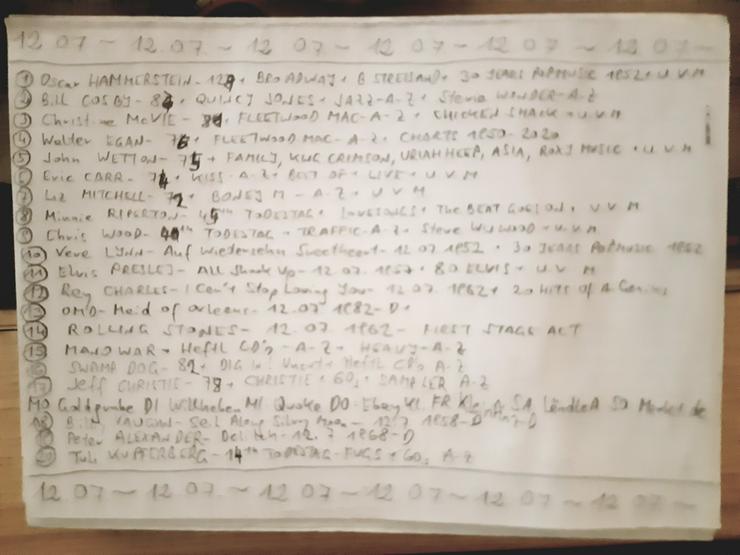 12 07 ~ 12.07. ~ 12 07 ~ 12 07 ~ 12 07 ~ 12 07 ~
① Oscar HAMMERSTEIN - 129 + BROADWAY + B STREISAND + 30 YEARS POPMUSIC 1952 + U V M
② Bill COSBY - 87 + QUINCY JONES + JAZZ - A - Z + Stevie WONDER - A - Z
③ Christine McVIE - 81 + FLEETWOOD MAC - A - Z + CHICKEN SHACK + U.V.M
④ Walter EGAN - 76 + FLEETWOOD MAC - A - Z + CHARTS 1950 - 2020
⑤ John WETTON - 75 + FAMILY, KING CRIMSON, URIAH HEEP, ASIA, ROXY MUSIC + U.V M
⑥ Eric CARR - 74 + KISS - A - Z + BEST OF + LIVE + U V M
⑦ Liz MITCHELL - 72 + BONEY M - A - Z + U V M
⑧ Minnie RIPERTON - 45th TODESTAG + LOVESONGS + The BEAT GOES ON + U V M
⑨ Chris WOOD - TODESTAG + TRAFFIC - A - Z + Steve WINWOOD + U V M
⑩ Vera LYNN - Auf Wiedersehn Sweetheart - 12 07 1952 + 30 YEARS POPMUSIC 1952
⑪ Elvis PRESLEY - All Shook Up - 12. 07. 1957 + 80 ELVIS + U. V M
⑫ Ray CHARLES - I Can't Stop Loving You - 12. 07. 1962 + 20 HITS of A Genius
⑬ OMD - Maid of Orleans - 12. 07 1982 - D +
⑭ ROLLING STONES - 12. 07. 1962 - FIRST STAGE ACT
⑮ MANOWAR + Heftl CD's - A - Z + HEAVY - A - Z
⑯ SWAMP DOG - 82 + DIG IN! + Heftl CD's A - Z
⑰ Jeff CHRISTIE - 78 + CHRISTIE + 60s + SAMPLER A - Z
MO Goldgrube DI Willhaben MI Quoka DO - Ebay Kl. FR SA LändleA SO Markt.de
⑱ Billy VAUGHN - Sail Along Silvery Moon - 12. 7 1958 - D
⑲ Peter ALEXANDER - Delilah - 12. 7 1968 - D
⑳ Tuli KUPFERBERG - 14th TODESTAG - FUGS + 60s A - Z
12 07 ~ 12 07. ~ 12 07 ~ 12 07 ~ 12 07 ~ 12 07 ~